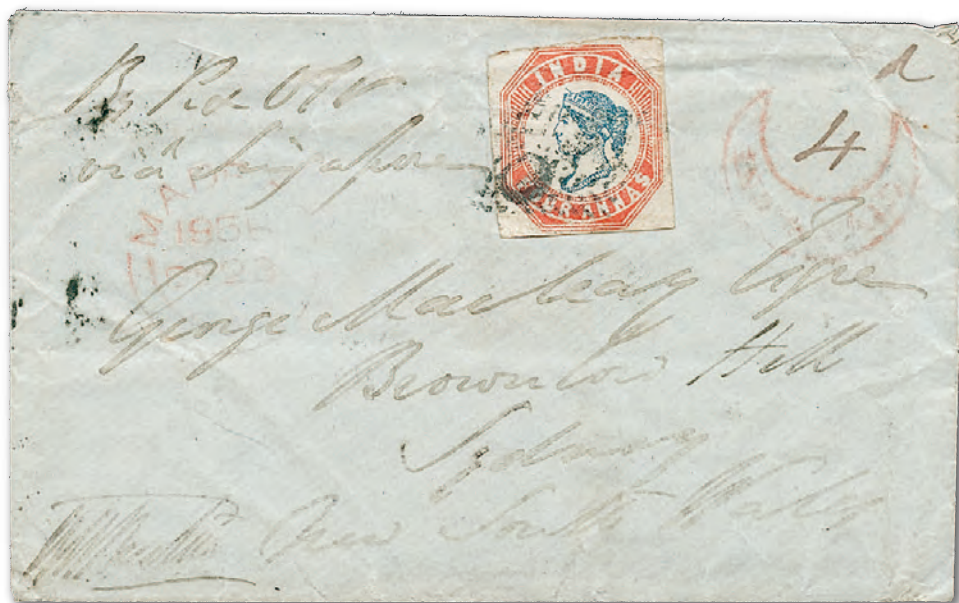 By P & O
viâ Singapore
INDIA
FOUR ANNAS
d
4
MA
185
George Macleay Esqre
Brownlow Hill
Sydney
New South Wales